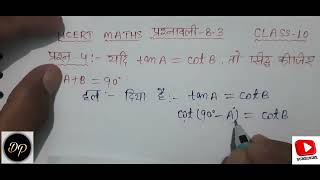 NCERT MATHS प्रश्नावली-8.3 CLASS-10
प्रश्न 4:- यदि tanA = cotB, तो सिद्ध कीजिए
A+B = 90°
हल:- दिया है:- tanA = cotB
cot(90°-A) = cotB
DP